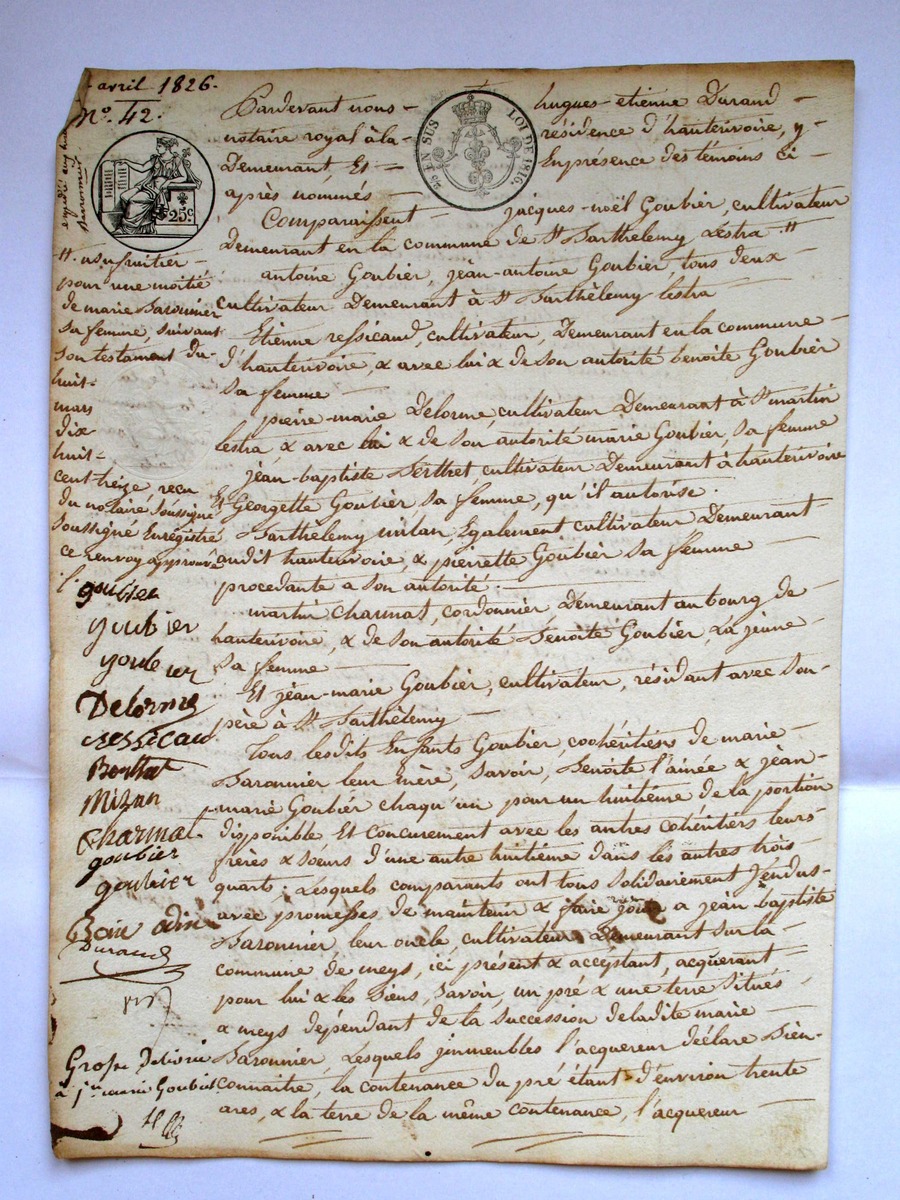 avril 1826.
N.° 42.
25 EN SUS LOI DE 1816.
25.c
expédié
Pardevant nous hugues-etienne Durand
notaire royal à la résidence d'hauterivoire, y
Demeurant, Et En présence des témoins ci-
après nommés
Comparaissent jacques-noël Goubier, cultivateur
Demeurant en la commune de St Barthelemy Lestra #
antoine Goubier, jean-antoine Goubier, tous deux
cultivateur Demeurant à St Barthèlemy lestra
Etienne ressicaud, cultivateur, Demeurant en la commune
d'hauterivoire, & avec lui & de son autorité benoite Goubier
sa femme
pierre-marie Delorme, cultivateur Demeurant à St martin
lestra, & avec lui & de son autorité marie Goubier, sa femme
jean-baptiste Berthet, cultivateur Demeurant à hauterivoire
Et Georgette Goubier sa femme, qu'il autorise.
Barthelemy milan, Egalement cultivateur Demeurant
audit hauterivoire, & pierrette Goubier sa femme
procedante a son autorité.
martin Charmat, cordonnier Demeurant au bourg de
hauterivoire, & de son autorité Benoite Goubier, La jeune
sa femme
Et jean-marie Goubier, cultivateur, résidant avec son
père à St Barthèlemy
Tous lesdits Enfants Goubier, cohéritiers de marie
Baronnier leur mère, savoir, Benoite l'ainée & jean-
marie Goubier chaqu'un pour un huitième de la portion
disponible Et concurement avec les autres cohéritiers leurs
frères & sœurs d'une autre huitième dans les autres trois
quarts; Lesquels comparants ont tous solidairement Vendus
avec promesses de maintenir & faire jouir a jean baptiste
Baronnier, leur oncle, cultivateur Demeurant sur la
commune de meys, ici présent & acceptant, acquerant
pour lui & les siens, savoir, un pré & une terre situés
a meys dépendant de la succession de ladite marie
Baronnier, Lesquels immeubles l'acquereur déclare bien
connaitre, la contenance du pré étant d'environ trente
ares, & la terre de la même contenance, l'acquereur
# usufruitier
pour une moitié
de marie Baronnier
sa femme, suivant
son testament du
huit
mars
dix
huit
cent treize reçu
du notaire soussigné
soussigné Enregistré
ce renvoy approuvé
goubier
goubier
Delorme
ressicaud
Berthet
Mizan
Charmat
goubier
goubier
Durand
Grosse Délivrée
à Jn marie Goubier